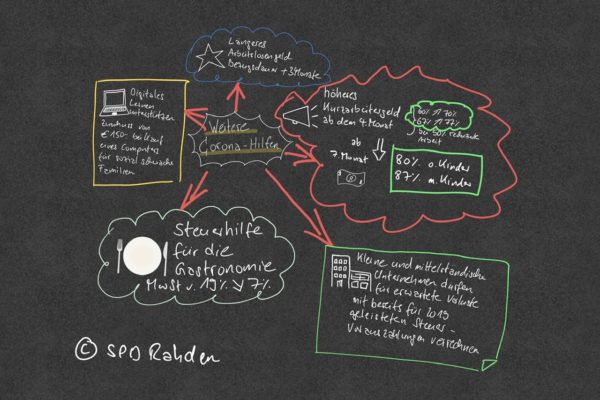 Längeres
Arbeitslosengeld
Bezugsdauer + 3 Monate
Digitales
Lernen
unterstützen
Zuschuss von
€ 150,- bei Kauf
eines Computers
für sozial schwache
Familien
Weitere
Corona-Hilfen
höheres
Kurzarbeitergeld
ab dem 4. Monat
60% ⇗ 70%
67% ⇗ 77%
bei 50% reduzierter
Arbeit
ab
7. Monat
80% o. Kinder
87% m. Kinder
Steuerhilfe
für die
Gastronomie
MwSt v. 19% ↘ 7%
Kleine und mittelständische
Unternehmen dürfen
für erwartete Verluste
mit bereits für 2019
geleisteten Steuer-
Vorauszahlungen verrechnen
© SPD Rahden